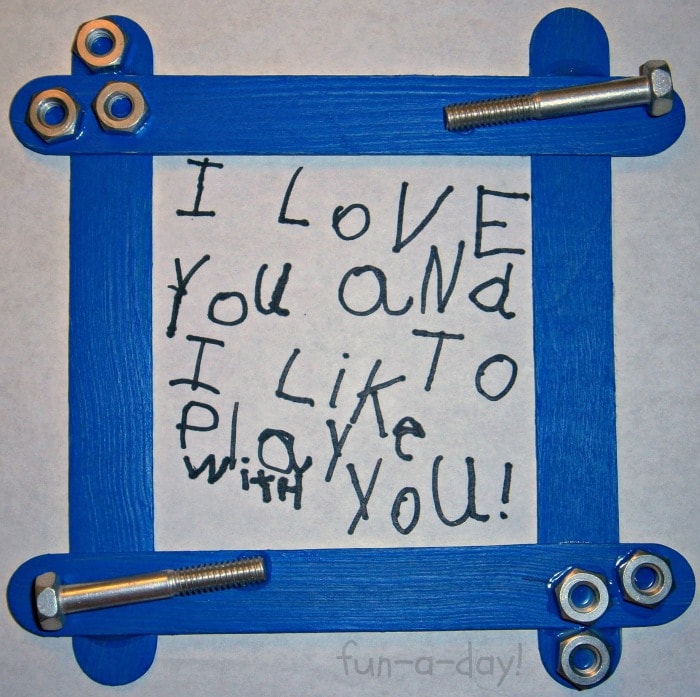 I LOVE
You aNd
I LiKe TO
Play
WITH YOU!
fun-a-day!